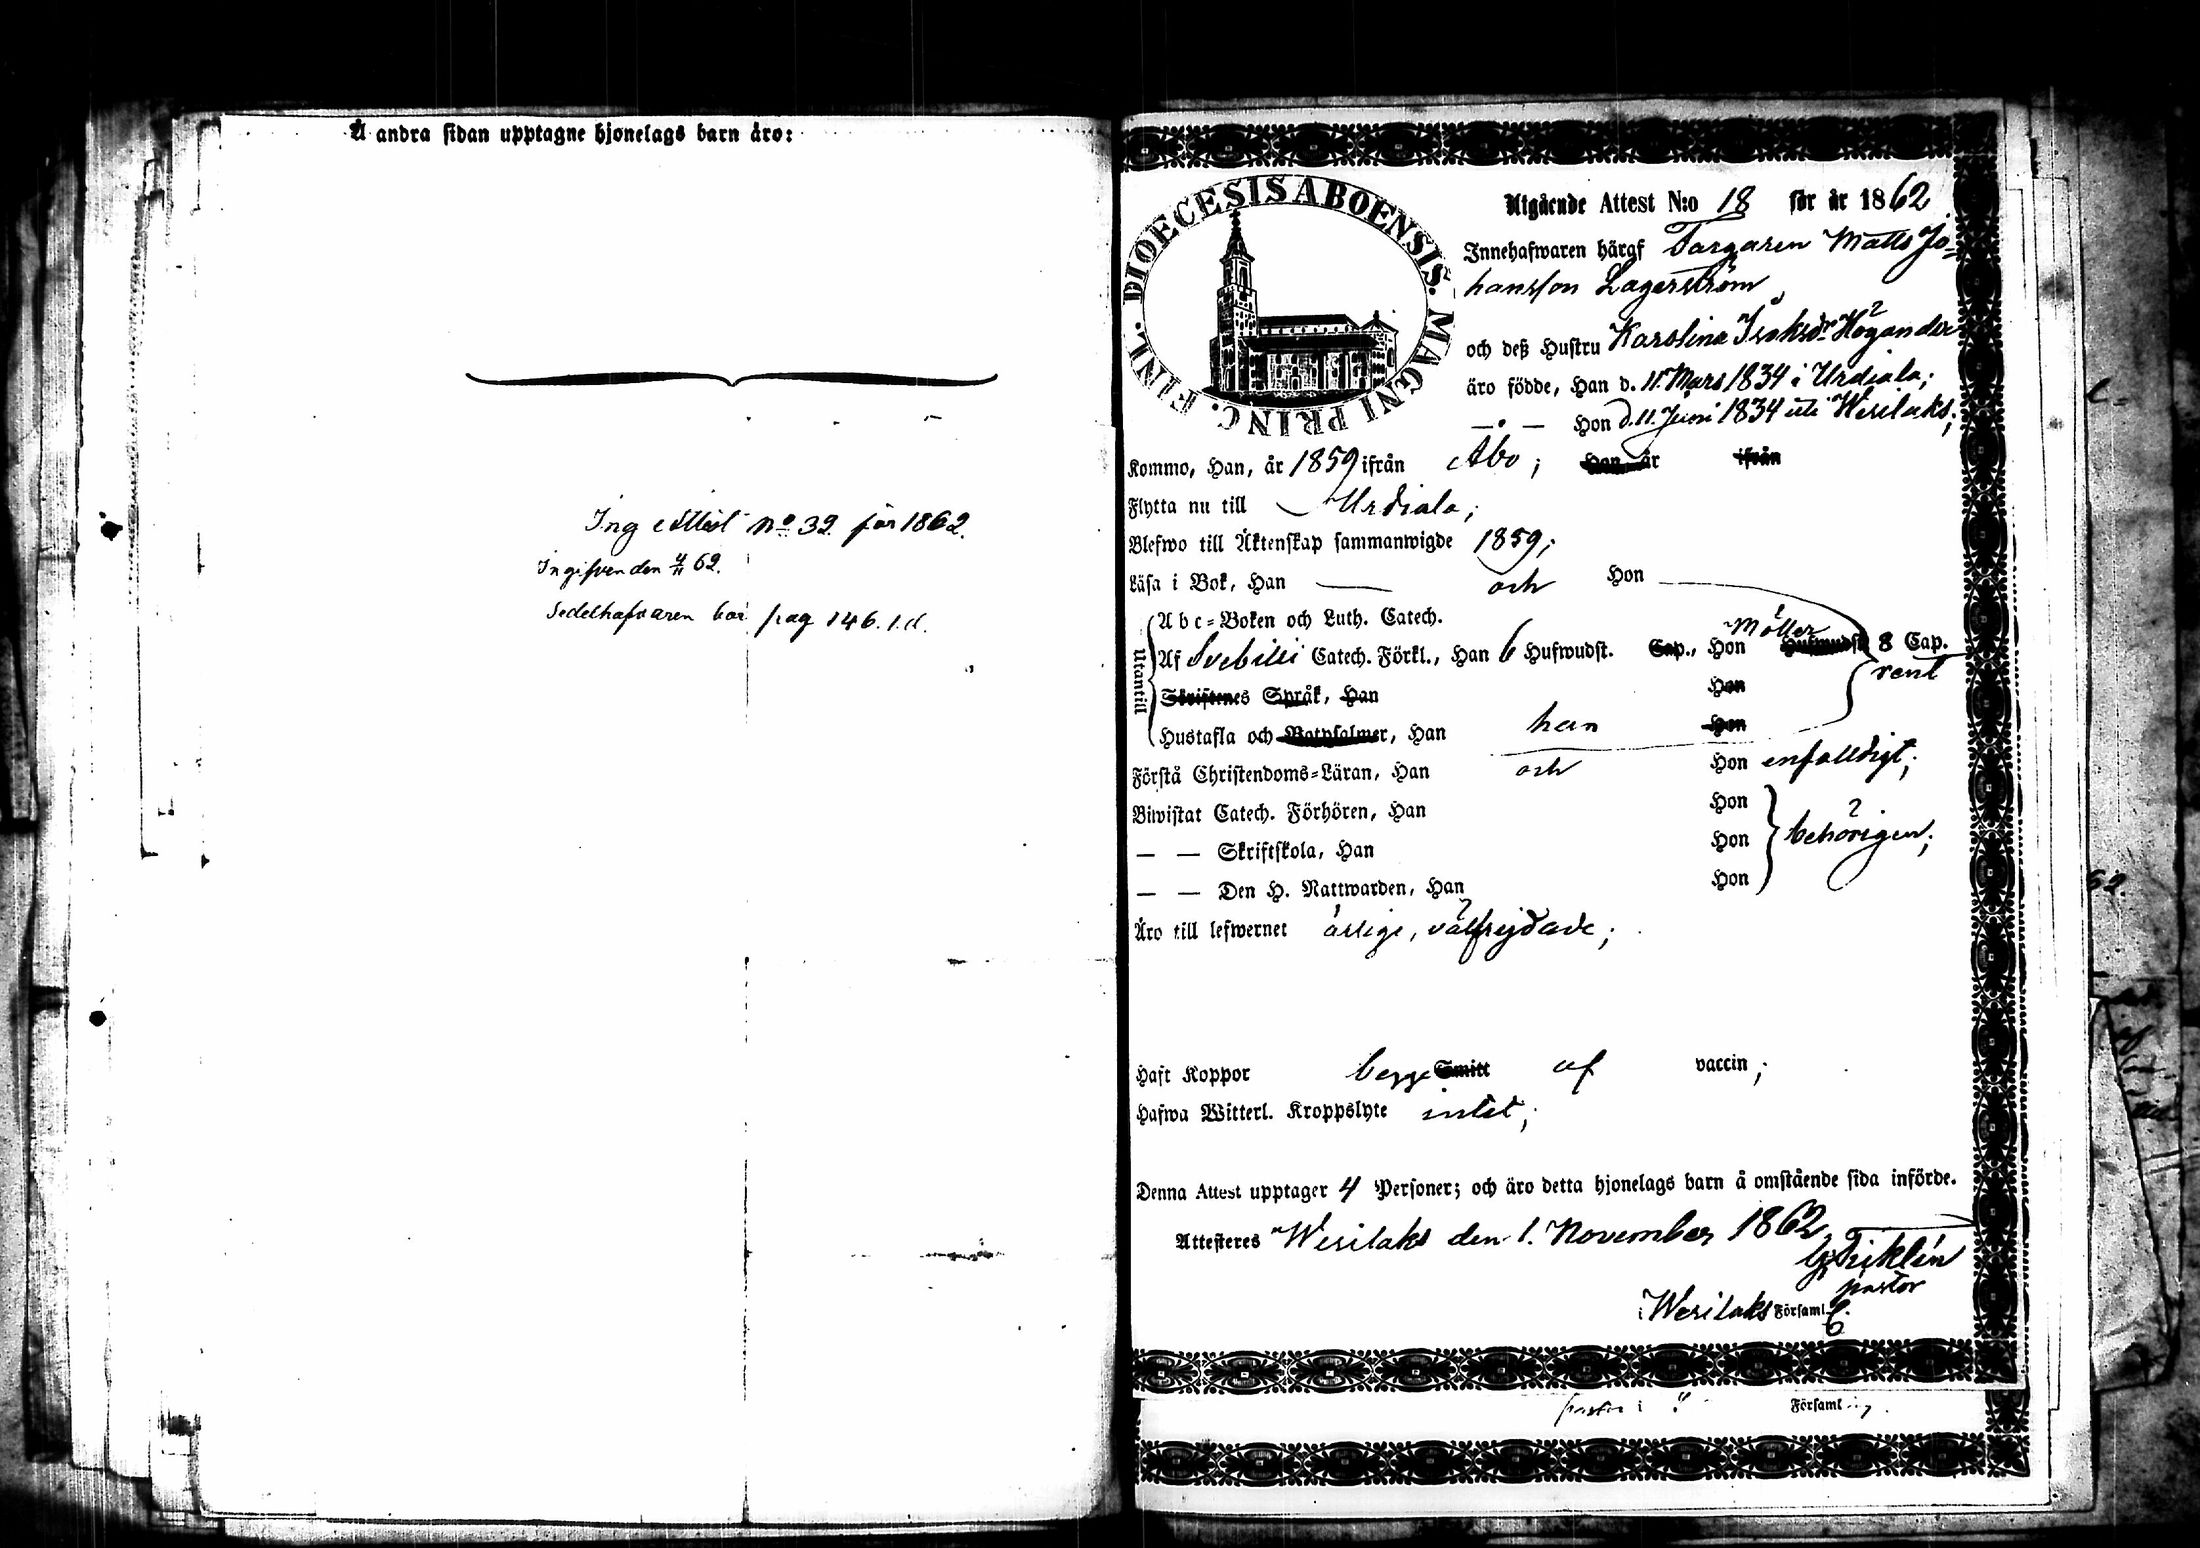 Å andra sidan upptagne hjonelags barn äro:
Ing Attest No 32 för 1862.
Ingifven den 4/11 62.
Sedelhafvaren bor pag 146. l.d.
DIOECESIS ABOENSIS. MAGNI PRINC. FINL.
Utgående Attest N:o 18 för år 1862
Innehafwaren häraf Fargaren Matts Jo=
hansson Lagerström
och deß Hustru Karolina Isaksdr Högander
äro födde, Han d. 11. Mars 1834 i Urdiala;
— " — Hon d. 11. Juni 1834 uti Wesilaks;
Kommo, Han, år 1859 ifrån Åbo; Hon år ifrån
Flytta nu till Urdiala;
Blefwo till Äktenskap sammanwigde 1859;
Läsa i Bok, Han — och Hon —
Utantill
Abc=Boken och Luth. Catech.
Möller
Af Svebilii Catech. Förkl., Han 6 Hufwudst. Cap., Hon Hufwudst. 8 Cap.
rent
Skriftenes Språk, Han Hon
Hustafla och Botpsalmer, Han han Hon
Förstå Christendoms=Läran, Han och Hon enfalldigt;
Biwistat Catech. Förhören, Han Hon
— — Skriftskola, Han Hon behörigen;
— — Den H. Nattwarden, Han Hon
Äro till lefwernet ärlige, välfrejdade;
Haft Koppor begge Smitt af vaccin;
Hafwa Witterl. Kroppslyte intet;
Denna Attest upptager 4 Personer; och äro detta hjonelags barn å omstående sida införde.
Attesteras Wesilaks den 1. November 1862,
pastor
i Wesilaks Församl.
pastor i Församling.